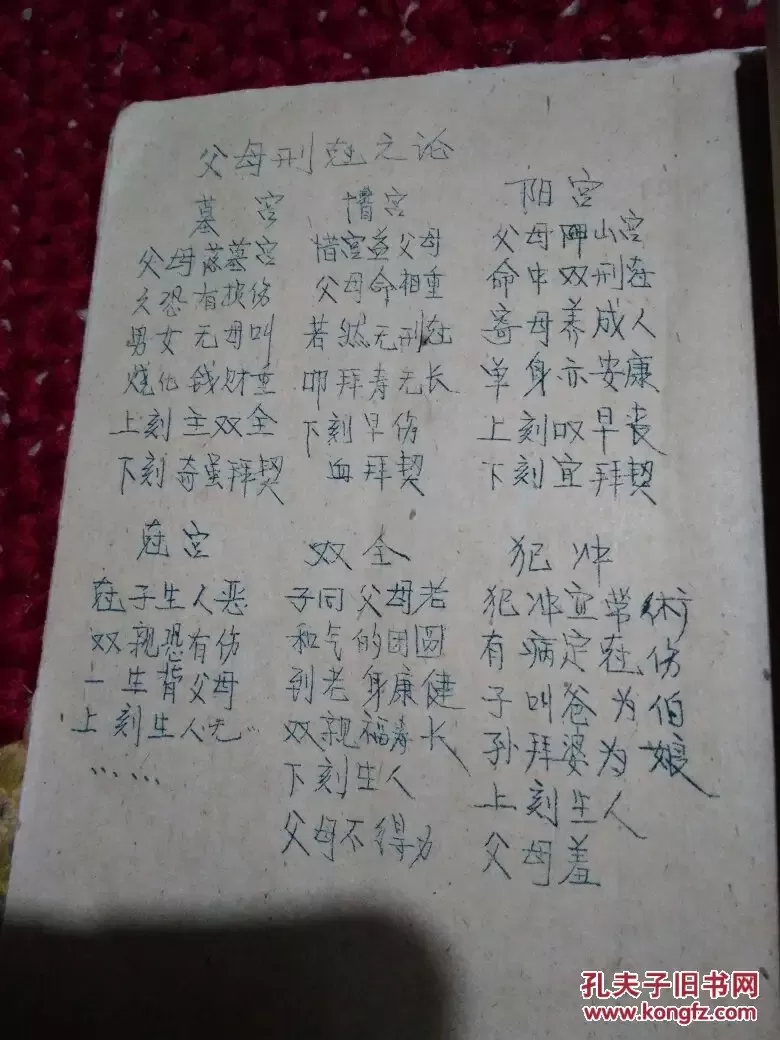 父母刑尅之论
墓宫
父母落墓宫
父恐有损伤
男女无母叫
烧化钱财重
上刻主双全
下刻奇虽拜契
惜宫
惜宫益父母
父母命相重
若然无刑尅
叩拜寿元长
下刻早伤
血拜契
阳宫
父母 山宫
命中双刑尅
寄母养成人
单身亦安康
上刻叹早丧
下刻宜拜契
尅宫
尅子生人恶
双亲恐有伤
一生背父母
上刻生人无..
……
双全
子同父母老
和气的团圆
到老身康健
双亲福寿长
下刻生人
父母不得为
犯冲
犯冲宜带術
有病定尅伤
子叫爸为伯
孙拜婆为娘
上刻生人
父母羞
孔夫子旧书网
www.kongfz.com